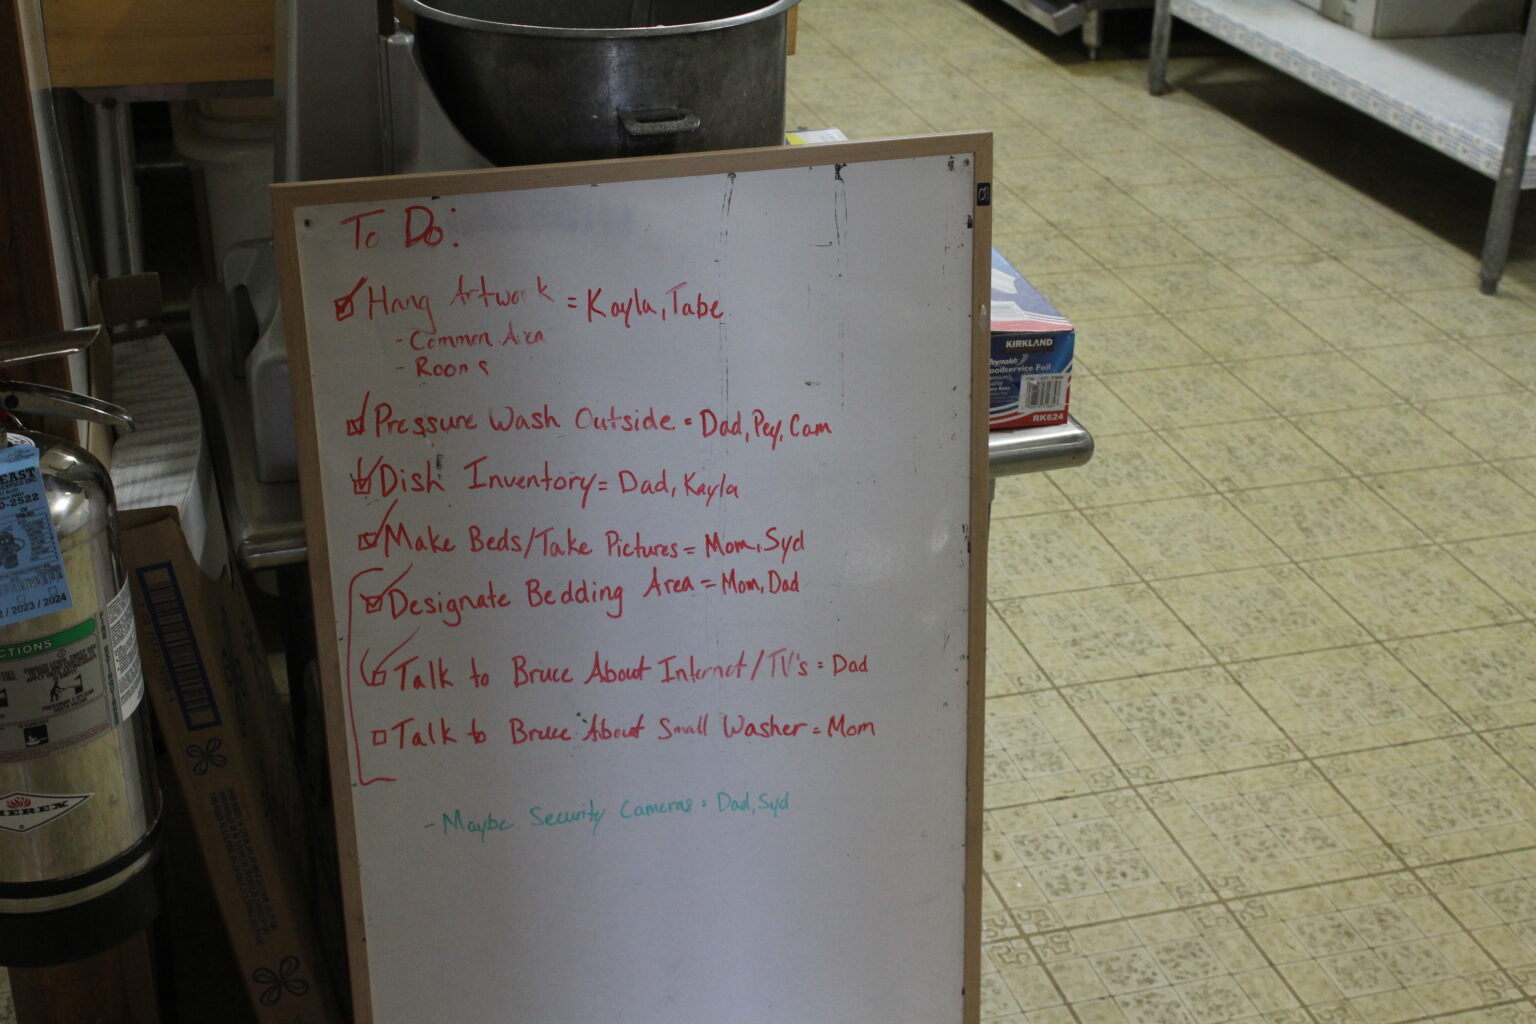 To Do:
Hang Artwork = Kayla, Tabe
- Common Area
- Rooms
Pressure Wash Outside = Dad, Pey, Cam
Dish Inventory = Dad, Kayla
Make Beds/Take Pictures = Mom, Syd
Designate Bedding Area = Mom, Dad
Talk to Bruce About Internet/TV's = Dad
Talk to Bruce About Small Washer = Mom
- Maybe Security Cameras = Dad, Syd
KIRKLAND
Foil
RK624
EAST
0-2522
/ 2023 / 2024
CTIONS
MEREX